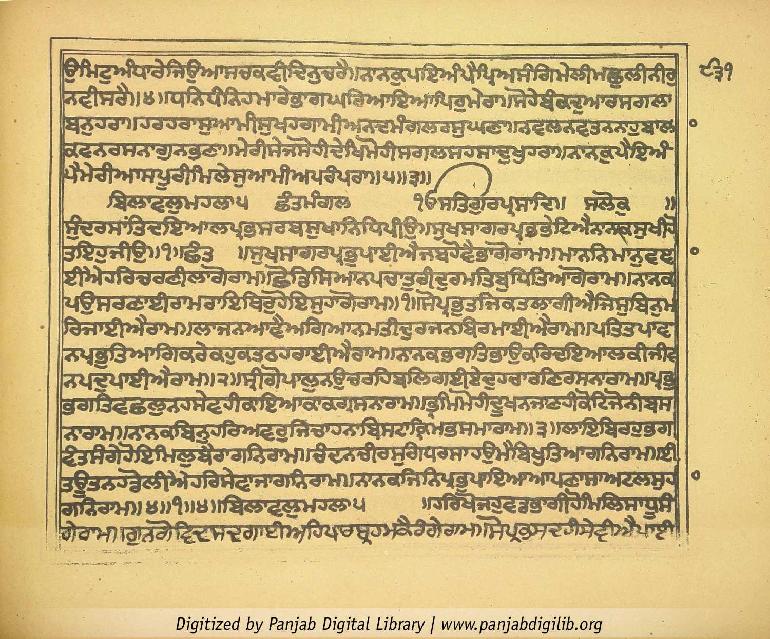 ਉਮਿਟੁਅੰਧਾਰੇਜਿਉਆਸਚਕਵੀਦਿਨੁਚਰੈ॥ਨਾਨਕੁਪਇਅੰਪੈਪ੍ਰਿਅਸੰਗਿਮੇਲੀਮਛੁਲੀਨੀਰੁ ੮੩੧
ਨਵੀਸਰੈ॥੪॥ਧਨਿਧੰਨਿਹਮਾਰੇਭਾਗਘਰਿਆਇਆਪਿਰੁਮੇਰਾ॥ਸੋਹੇਬੰਕਦੁਆਰਸਗਲਾ
ਬਨੁਹਰਾ॥ਹਰਹਰਾਸੁਆਮੀਸੁਖਹਗਾਮੀਅਨਦਮੰਗਲਰਸੁਘਣਾ॥ਨਵਲਨਵਤਨਨਾਹੁਬਾਲਾ
ਕਵਨਰਸਨਾਗੁਨਭਣਾ॥ਮੇਰੀਸੇਜਸੋਹੀਦੇਖਿਮੋਹੀਸਗਲਸਹਸਾਦੁਖੁਹਰਾ॥ਨਾਨਕੁਪਇਅੰ
ਪੈਮੇਰੀਆਸਪੂਰੀਮਿਲੇਸੁਆਮੀਅਪਰੰਪਰਾ॥੫॥੩॥
ਬਿਲਾਵਲੁਮਹਲਾ੫ ਛੰਤਮੰਗਲ ੴਸਤਿਗੁਰਪ੍ਰਸਾਦਿ॥ ਸਲੋਕੁ ॥
ਸੁੰਦਰਸਾਂਤਿਦਇਆਲਪ੍ਰਭਸਰਬਸੁਖਾਨਿਧਿਪੀਉ॥ਸੁਖਸਾਗਰਪ੍ਰਭਭੇਟਿਐਨਾਨਕਸੁਖੀਹੋ
ਤਇਹੁਜੀਉ॥੧॥ਛੰਤ ॥ਸੁਖਸਾਗਰਪ੍ਰਭੁਪਾਈਐਜਬਹੋਵੈਭਾਗੋਰਾਮ॥ਮਾਨਨਿਮਾਨੁਵਞਾ
ਈਐਹਰਿਚਰਣੀਲਾਗੋਰਾਮ॥ਛੋਡਿਸਿਆਨਪਚਾਤੁਰੀਦੁਰਮਤਿਬੁਧਿਤਿਆਗੋਰਾਮ॥ਨਾਨਕ
ਪਉਸਰਣਾਈਰਾਮਰਾਇਥਿਰੁਹੋਇਸੁਹਾਗੋਰਾਮ॥੧॥ਸੋਪ੍ਰਭੁਤਜਿਕਤਲਾਗੀਐਜਿਸੁਬਿਨੁਮ
ਰਿਜਾਈਐਰਾਮ॥ਲਾਜਨਆਵੈਅਗਿਆਨਮਤੀਦੁਰਜਨਬਿਰਮਾਈਐਰਾਮ॥ਪਤਿਤਪਾਵ
ਨਪ੍ਰਭੁਤਿਆਗਿਕਰੇਕਹੁਕਤਠਹਰਾਈਐਰਾਮ॥ਨਾਨਕਭਗਤਿਭਾਉਕਰਿਦਇਆਲਕੀਜੀਵ
ਨਪਦੁਪਾਈਐਰਾਮ॥੨॥ਸ੍ਰੀਗੋਪਾਲੁਨਉਚਰਹਿਬਲਿਗਈਏਦੁਹਚਾਰਣਿਰਸਨਾਰਾਮ॥ਪ੍ਰਭੁ
ਭਗਤਿਵਛਲੁਨਹਸੇਵਹੀਕਾਇਆਕਾਕਗ੍ਰਸਨਾਰਾਮ॥ਭ੍ਰਮਿਮੋਹੀਦੂਖਨਜਾਣਹੀਕੋਟਿਜੋਨੀਬਸ
ਨਾਰਾਮ॥ਨਾਨਕਬਿਨੁਹਰਿਅਵਰੁਜਿਚਾਹਨਾਬਿਸਟਾਕ੍ਰਿਮਭਸਮਾਰਾਮ॥੩॥ਲਾਇਬਿਰਹੁਭਗ
ਵੰਤਸੰਗੇਹੋਇਮਿਲੁਬੈਰਾਗਨਿਰਾਮ॥ਚੰਦਨਚੀਰਸੁਗੰਧਰਸਾਹਉਮੈਬਿਖੁਤਿਆਗਨਿਰਾਮ॥ਈ
ਤਊਤਨਹਡੋਲੀਐਹਰਿਸੇਵਾਜਾਗਨਿਰਾਮ॥ਨਾਨਕਜਿਨਿਪ੍ਰਭੁਪਾਇਆਆਪਣਾਸਾਅਟਲਸੁਹਾ
ਗਨਿਰਾਮ॥੪॥੧॥੪॥ਬਿਲਾਵਲੁਮਹਲਾ੫ ॥ਹਰਿਖੋਜਹੁਵਡਭਾਗੀਹੋਮਿਲਿਸਾਧੂਸੰ
ਗੇਰਾਮ॥ਗੁਨਗੋਵਿਦਸਦਗਾਈਅਹਿਪਾਰਬ੍ਰਹਮਕੈਰੰਗੇਰਾਮ॥ਸੋਪ੍ਰਭੁਸਦਹੀਸੇਵੀਐਪਾਈ
Digitized by Panjab Digital Library | www.panjabdigilib.org